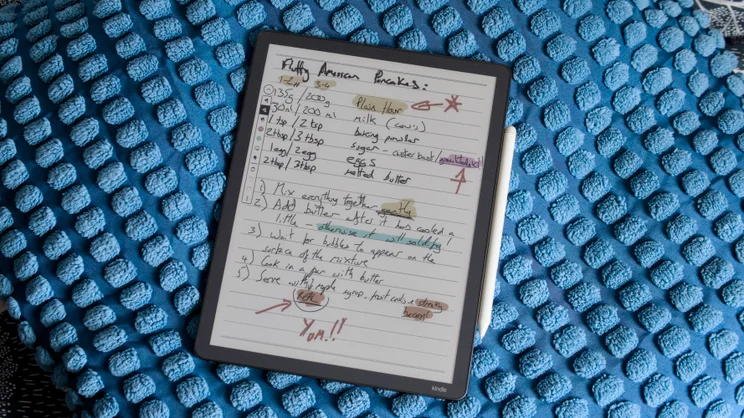 Fluffy American Pancakes:
1-2 3-4
135g / 200g Plain flour
130ml / 200 ml milk (cow's)
1 tsp / 2 tsp baking powder
2 tbsp / 3 tbsp sugar - caster best /
1 egg / 2 egg eggs
2 tbsp / 3 tbsp melted butter
1) Mix everything together
2) Add butter after it has cooled a
little - otherwise it will solidify!
3) Wait for bubbles to appear on the
surface of the mixture
4) Cook in a pan with butter
5) Serve with maple syrup, fruit and/or streaky
bacon!
Yum!!
kindle